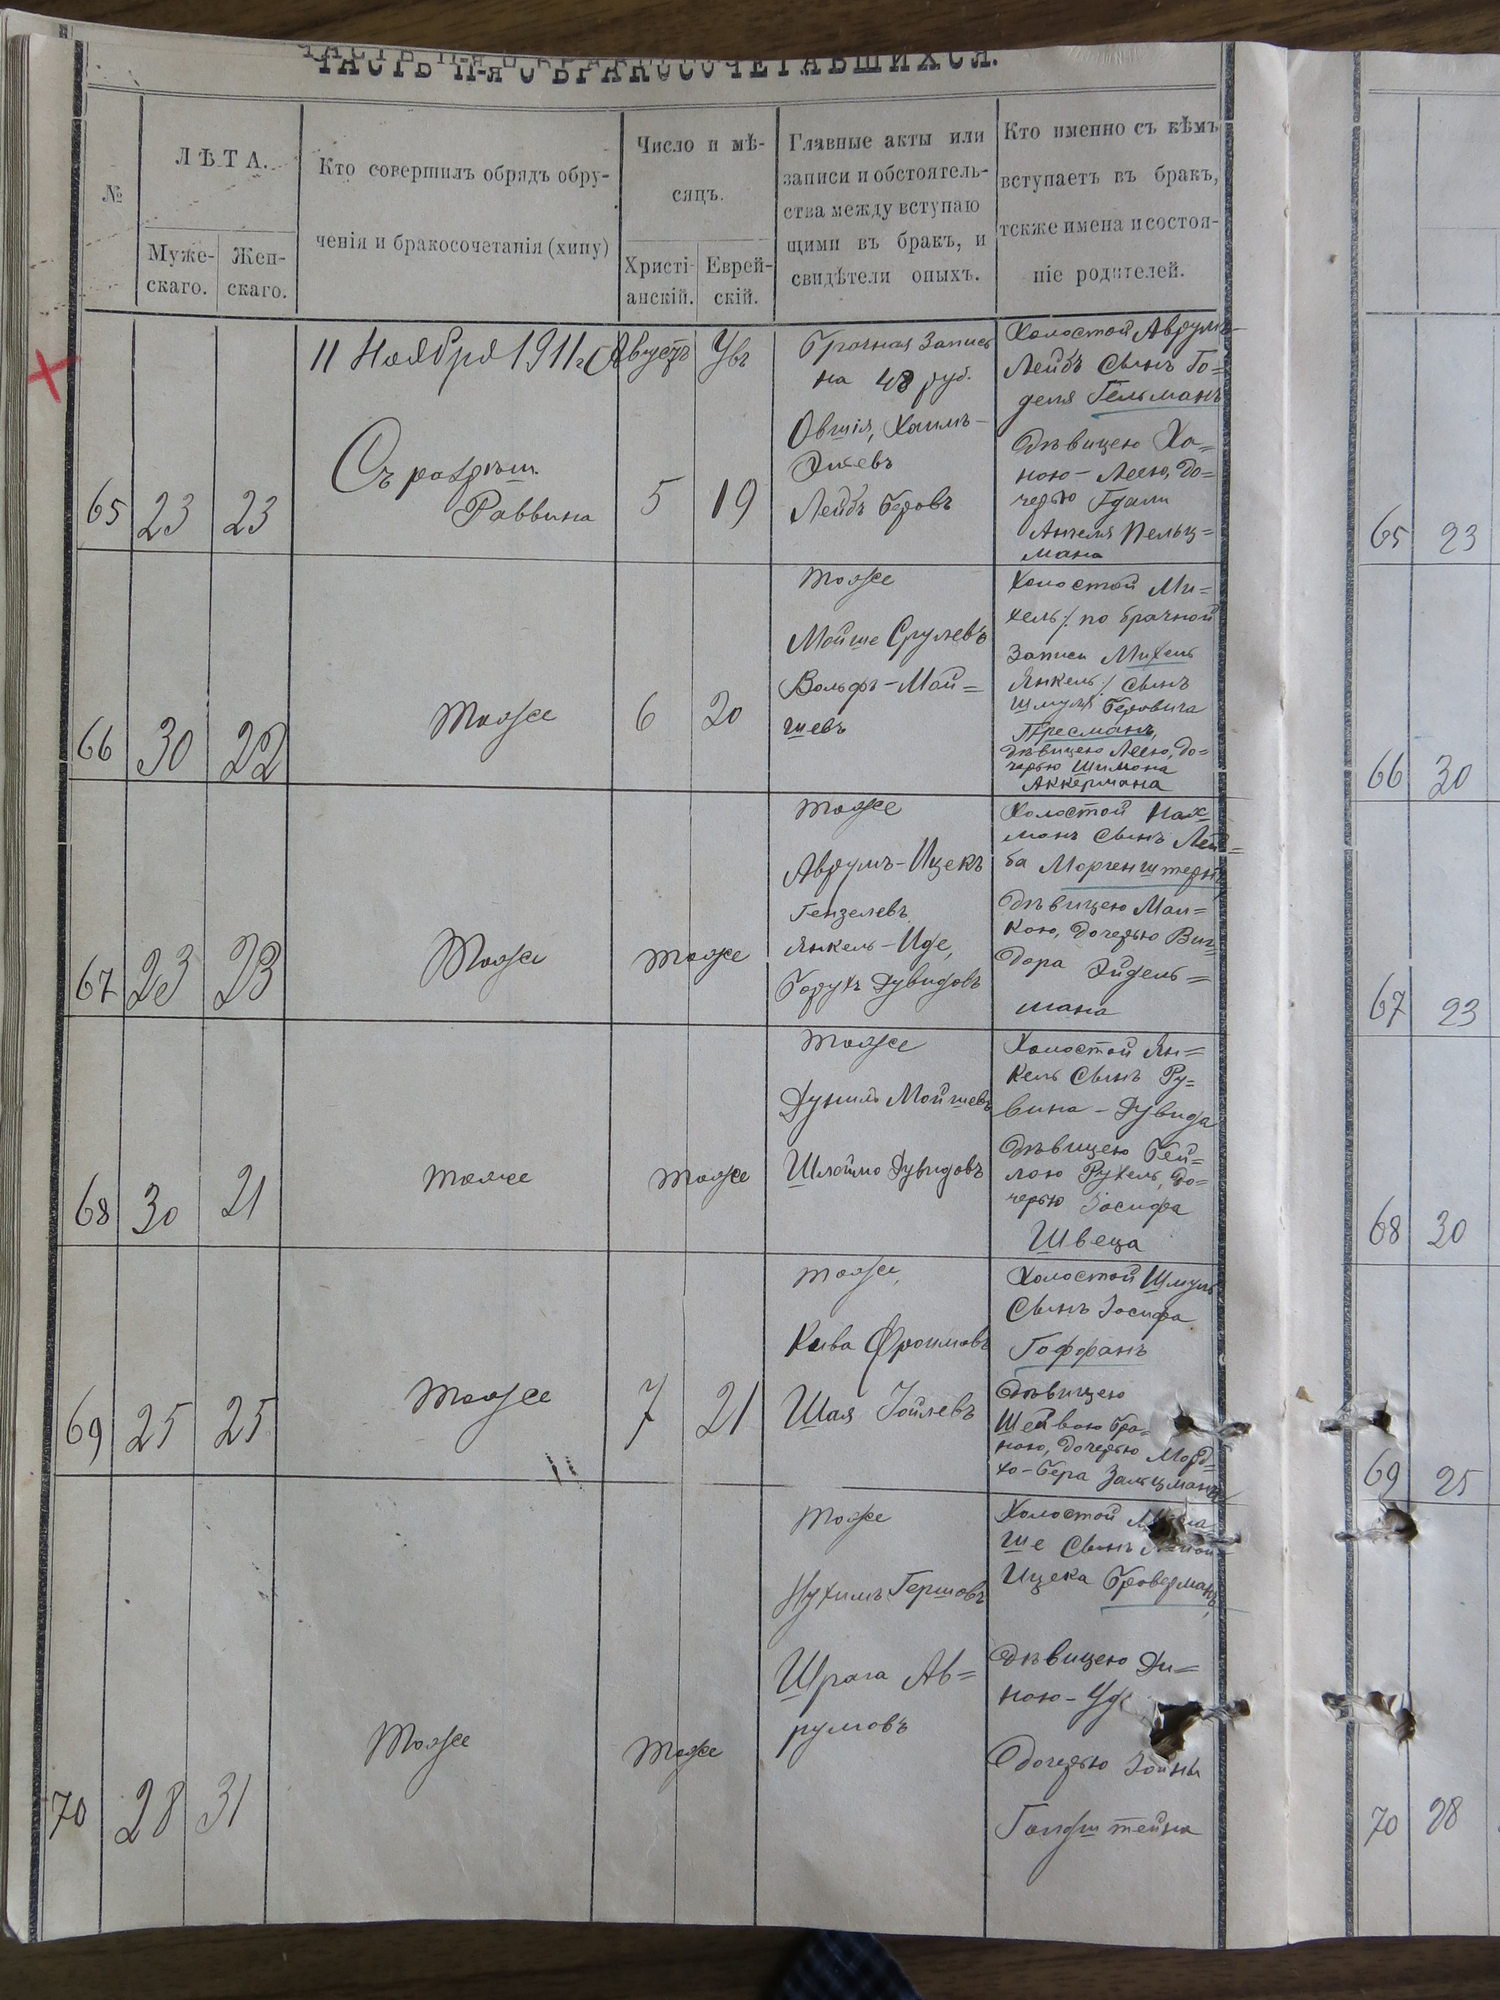 ЧАСТЬ II-я О БРАКОСОЧЕТАВШИХСЯ.
№
ЛѢТА.
Муже-
скаго.
Жен-
скаго.
Кто совершилъ обрядъ обру-
ченія и бракосочетанія (хипу)
Число и мѣ-
сяцъ.
Христі-
анскій.
Еврей-
скій.
Главные акты или
записи и обстоятель-
ства между вступаю
щими въ бракъ, и
свидѣтели оныхъ.
Кто именно съ кѣмъ
вступаетъ въ бракъ,
также имена и состоя-
ніе родителей.
65
23
23
11 Ноября 1911 г.
Съ разрѣш.
Раввина
Августъ
5
Увъ
19
Брачная Запись
на 48 руб.
Овшія, Хаимъ-
Лейбъ Беровъ
Холостой Аврумъ-
Лейбъ Сынъ Го=
деля Гельманъ
Дѣвицею Ха=
ною-Леею, до=
черью Гдали
Анчеля Пельц=
мана
66
30
22
Тоже
6
20
Тоже
Мойше Срулевъ
Вольфъ-Мой=
шевъ
Холостой Ми=
хель /. по брачной
Записи Михель
Янкель ./ Сынъ
Шмуля Беровича
Пресманъ,
дѣвицею Леею, до=
черью Шимона
Аккермана
67
23
23
Тоже
Тоже
Тоже
Аврумъ-Ицекъ
Гензелевъ
Янкель-Иде,
Борухъ Дувидовъ
Холостой Нах=
манъ Сынъ Лей=
ба Моргенштернъ
Дѣвицею Мал=
кою, дочерью Виг=
дора Эйдель=
мана
68
30
21
Тоже
Тоже
Тоже
Дунилъ Мойшевъ
Шлоймо Дувидовъ
Холостой Ян=
кель Сынъ Ру=
вина-Дувида
Дѣвицею Бей=
лою Рухель, до=
черью Іосифа
Швеца
69
25
25
Тоже
7
21
Тоже
Кива Фроимовъ
Шая Іойлевъ
Холостой Шмуль
Сынъ Іосифа
Гофманъ
Дѣвицею
Шейвою Бра=
ною, дочерью Морд=
хо-Бера Зальцмана
70
28
31
Тоже
Тоже
Тоже
Нухимъ Гершовъ
Шрага Ав=
румовъ
Холостой
ше Сынъ
Ицека Броверманъ,
Дѣвицею Ди=
ною-
Дочерью Іойны
Голдштейна
65
23
66
30
67
23
68
30
69
25
70
28